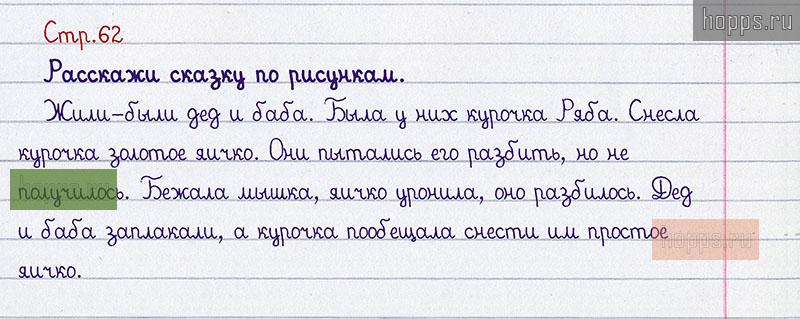 hopps.ru
Стр.62
Расскажи сказку по рисункам.
Жили-были дед и баба. Была у них курочка Ряба. Снесла
курочка золотое яичко. Они пытались его разбить, но не
получилось. Бежала мышка, яичко уронила, оно разбилось. Дед
и баба заплакали, а курочка пообещала снести им простое
hopps.ru
яичко.